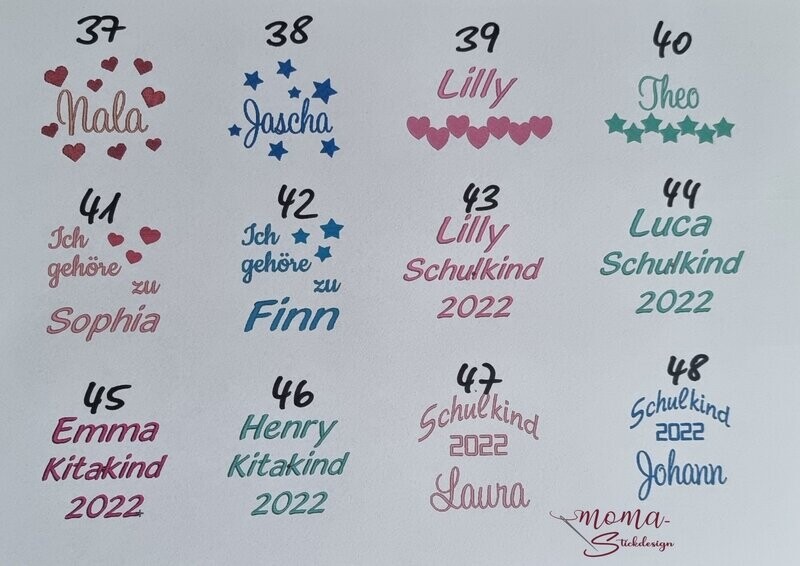 37
Nala
38
Jascha
39
Lilly
40
Theo
41
Ich
gehöre
zu
Sophia
42
Ich
gehöre
zu
Finn
43
Lilly
Schulkind
2022
44
Luca
Schulkind
2022
45
Emma
Kitakind
2022
46
Henry
Kitakind
2022
47
Schulkind
2022
Laura
48
Schulkind
2022
Johann
moma-
Stickdesign